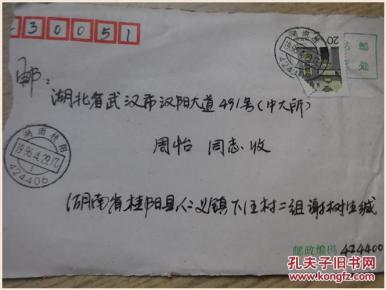 430051
20
邮:
邮票处
湖北省武汉市汉阳大道491号(中大所)
周怡 同志收
湖南桂阳
1996.4.29.17
424406
湖南省桂阳县仁义镇下王村二组谢树恒缄
邮政编码 424400
孔夫子旧书网
KONGFZ.COM